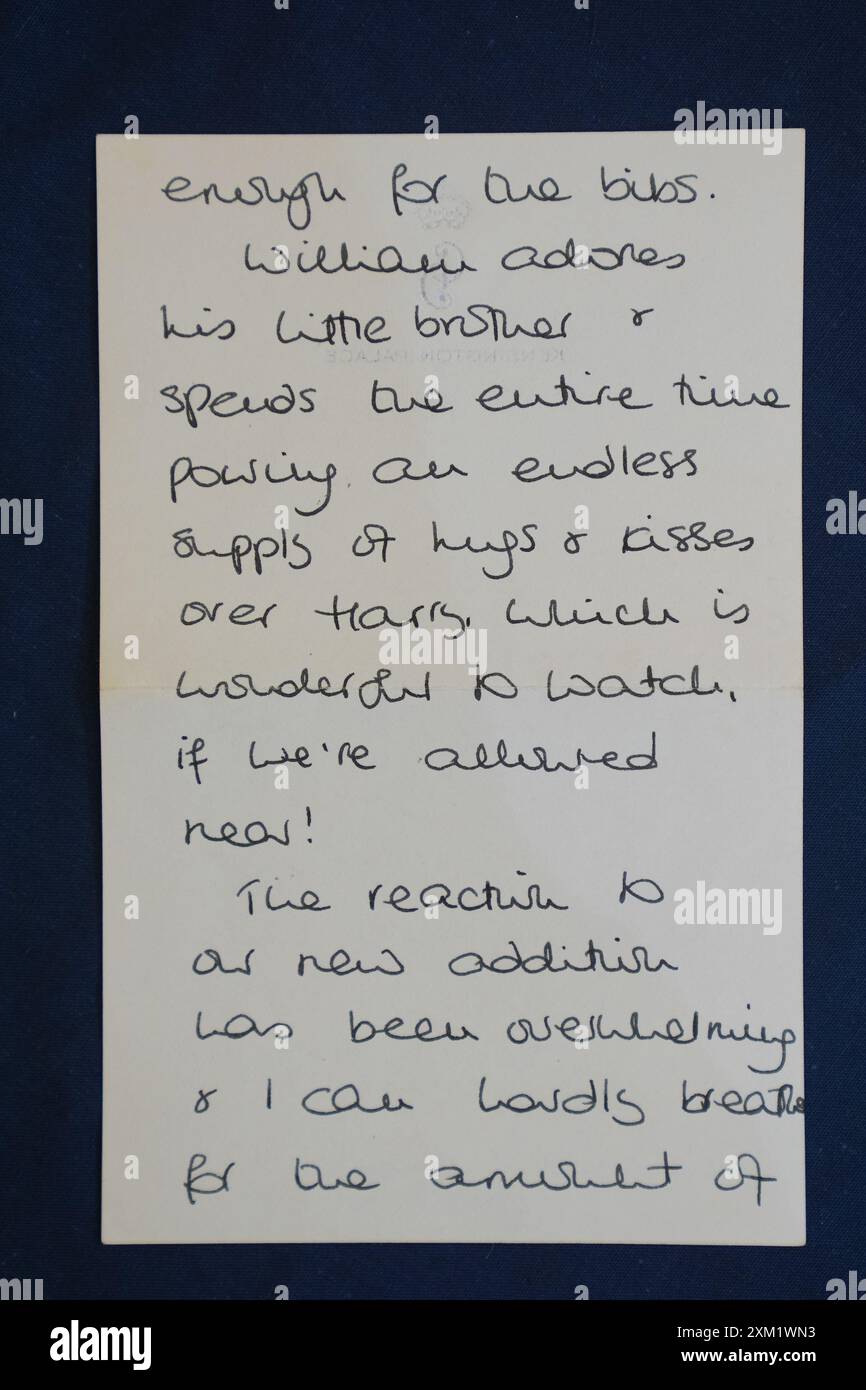 enough for the bibs.
William adores
his little brother &
spends the entire time
pouring an endless
supply of hugs & kisses
over Harry, which is
wonderful to watch,
if we're allowed
near!
The reaction to
our new addition
has been overwhelming
& I can hardly breathe
for the amount of
KENSINGTON PALACE
alamy
Image ID: 2XM1WN3
www.alamy.com